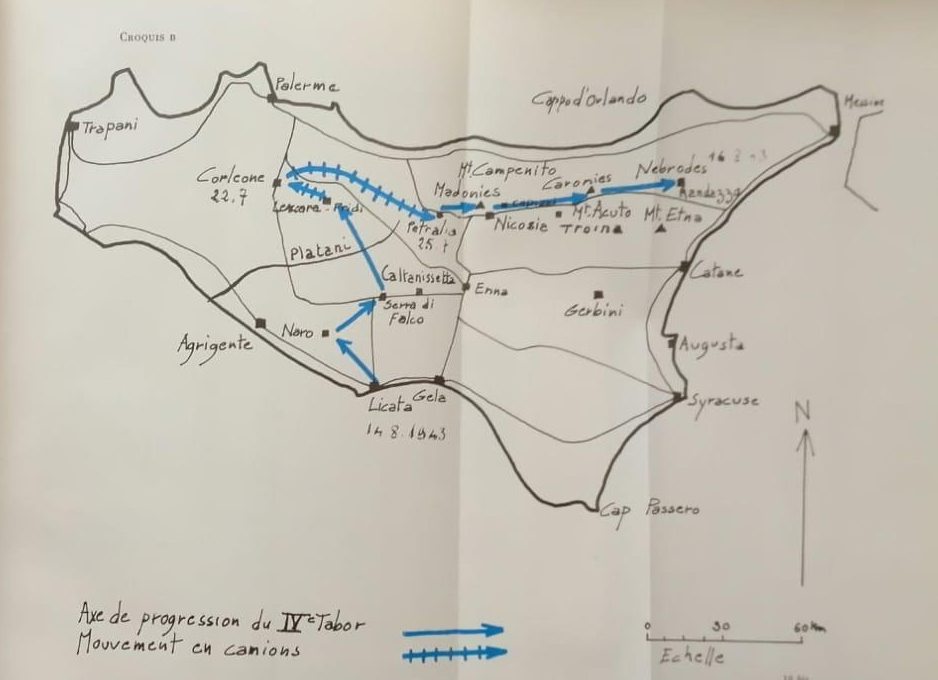 CROQUIS B
Palerme
Cappo d'Orlando
Messine
Trapani
Mt. Campenito
Nebrodes
Corleone
22.7
Caronies
Madonies
Petralia
25.
Nicosie
Mt. Acuto
Troina
Mt. Etna
Platani
Caltanissetta
Catane
Enna
Serra di
Falco
Gerbini
Naro
Agrigente
Augusta
Licata
Gela
Syracuse
14 8.1943
N
Cap Passero
Axe de progression du IVe Tabor
Mouvement en camions
0 30 60 Km
Echelle